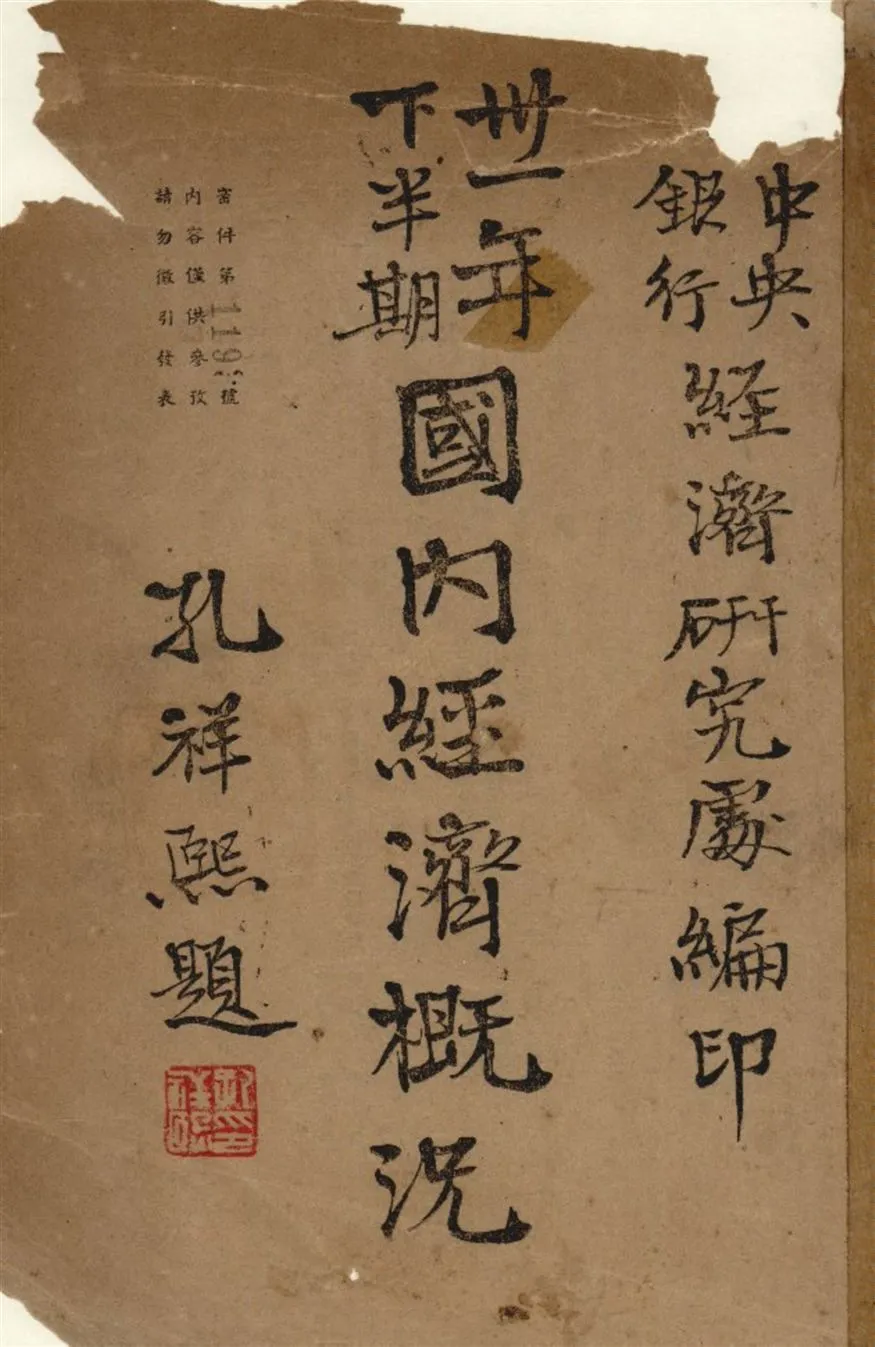 中央
銀行
経濟研究處編印
卅一年
下半期
國内經濟概況
密件第119號
内容僅供參攷
請勿徵引發表
孔祥熙題